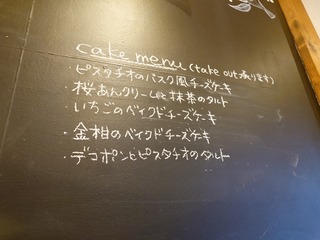 cake menu (take out 承ります)
・ピスタチオのバスク風チーズケーキ
・桜あんクリームと抹茶のタルト
・いちごのベイクドチーズケーキ
・金柑のベイクドチーズケーキ
・デコポンとピスタチオのタルト